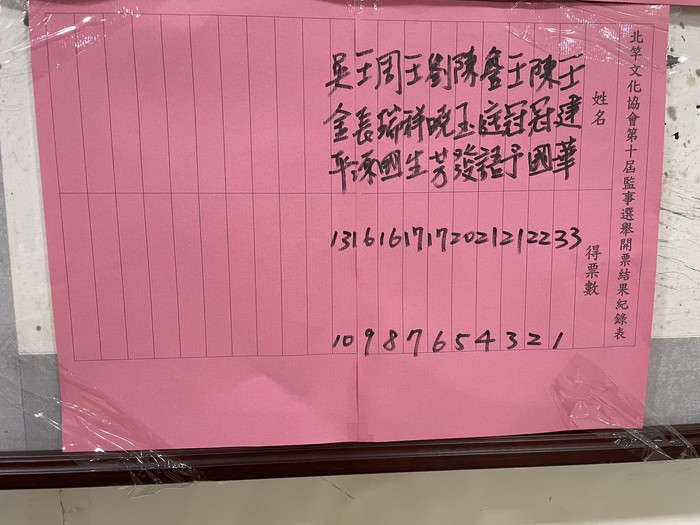 北竿文化協會第十屆監事選舉開票結果紀錄表
姓名 得票數
王建華 33 1
陳冠國 22 2
王冠予 21 3
詹庭語 21 4
陳玉發 20 5
劉曉芳 17 6
王祥生 17 7
周瑞國 16 8
王長 16 9
吳金平 13 10